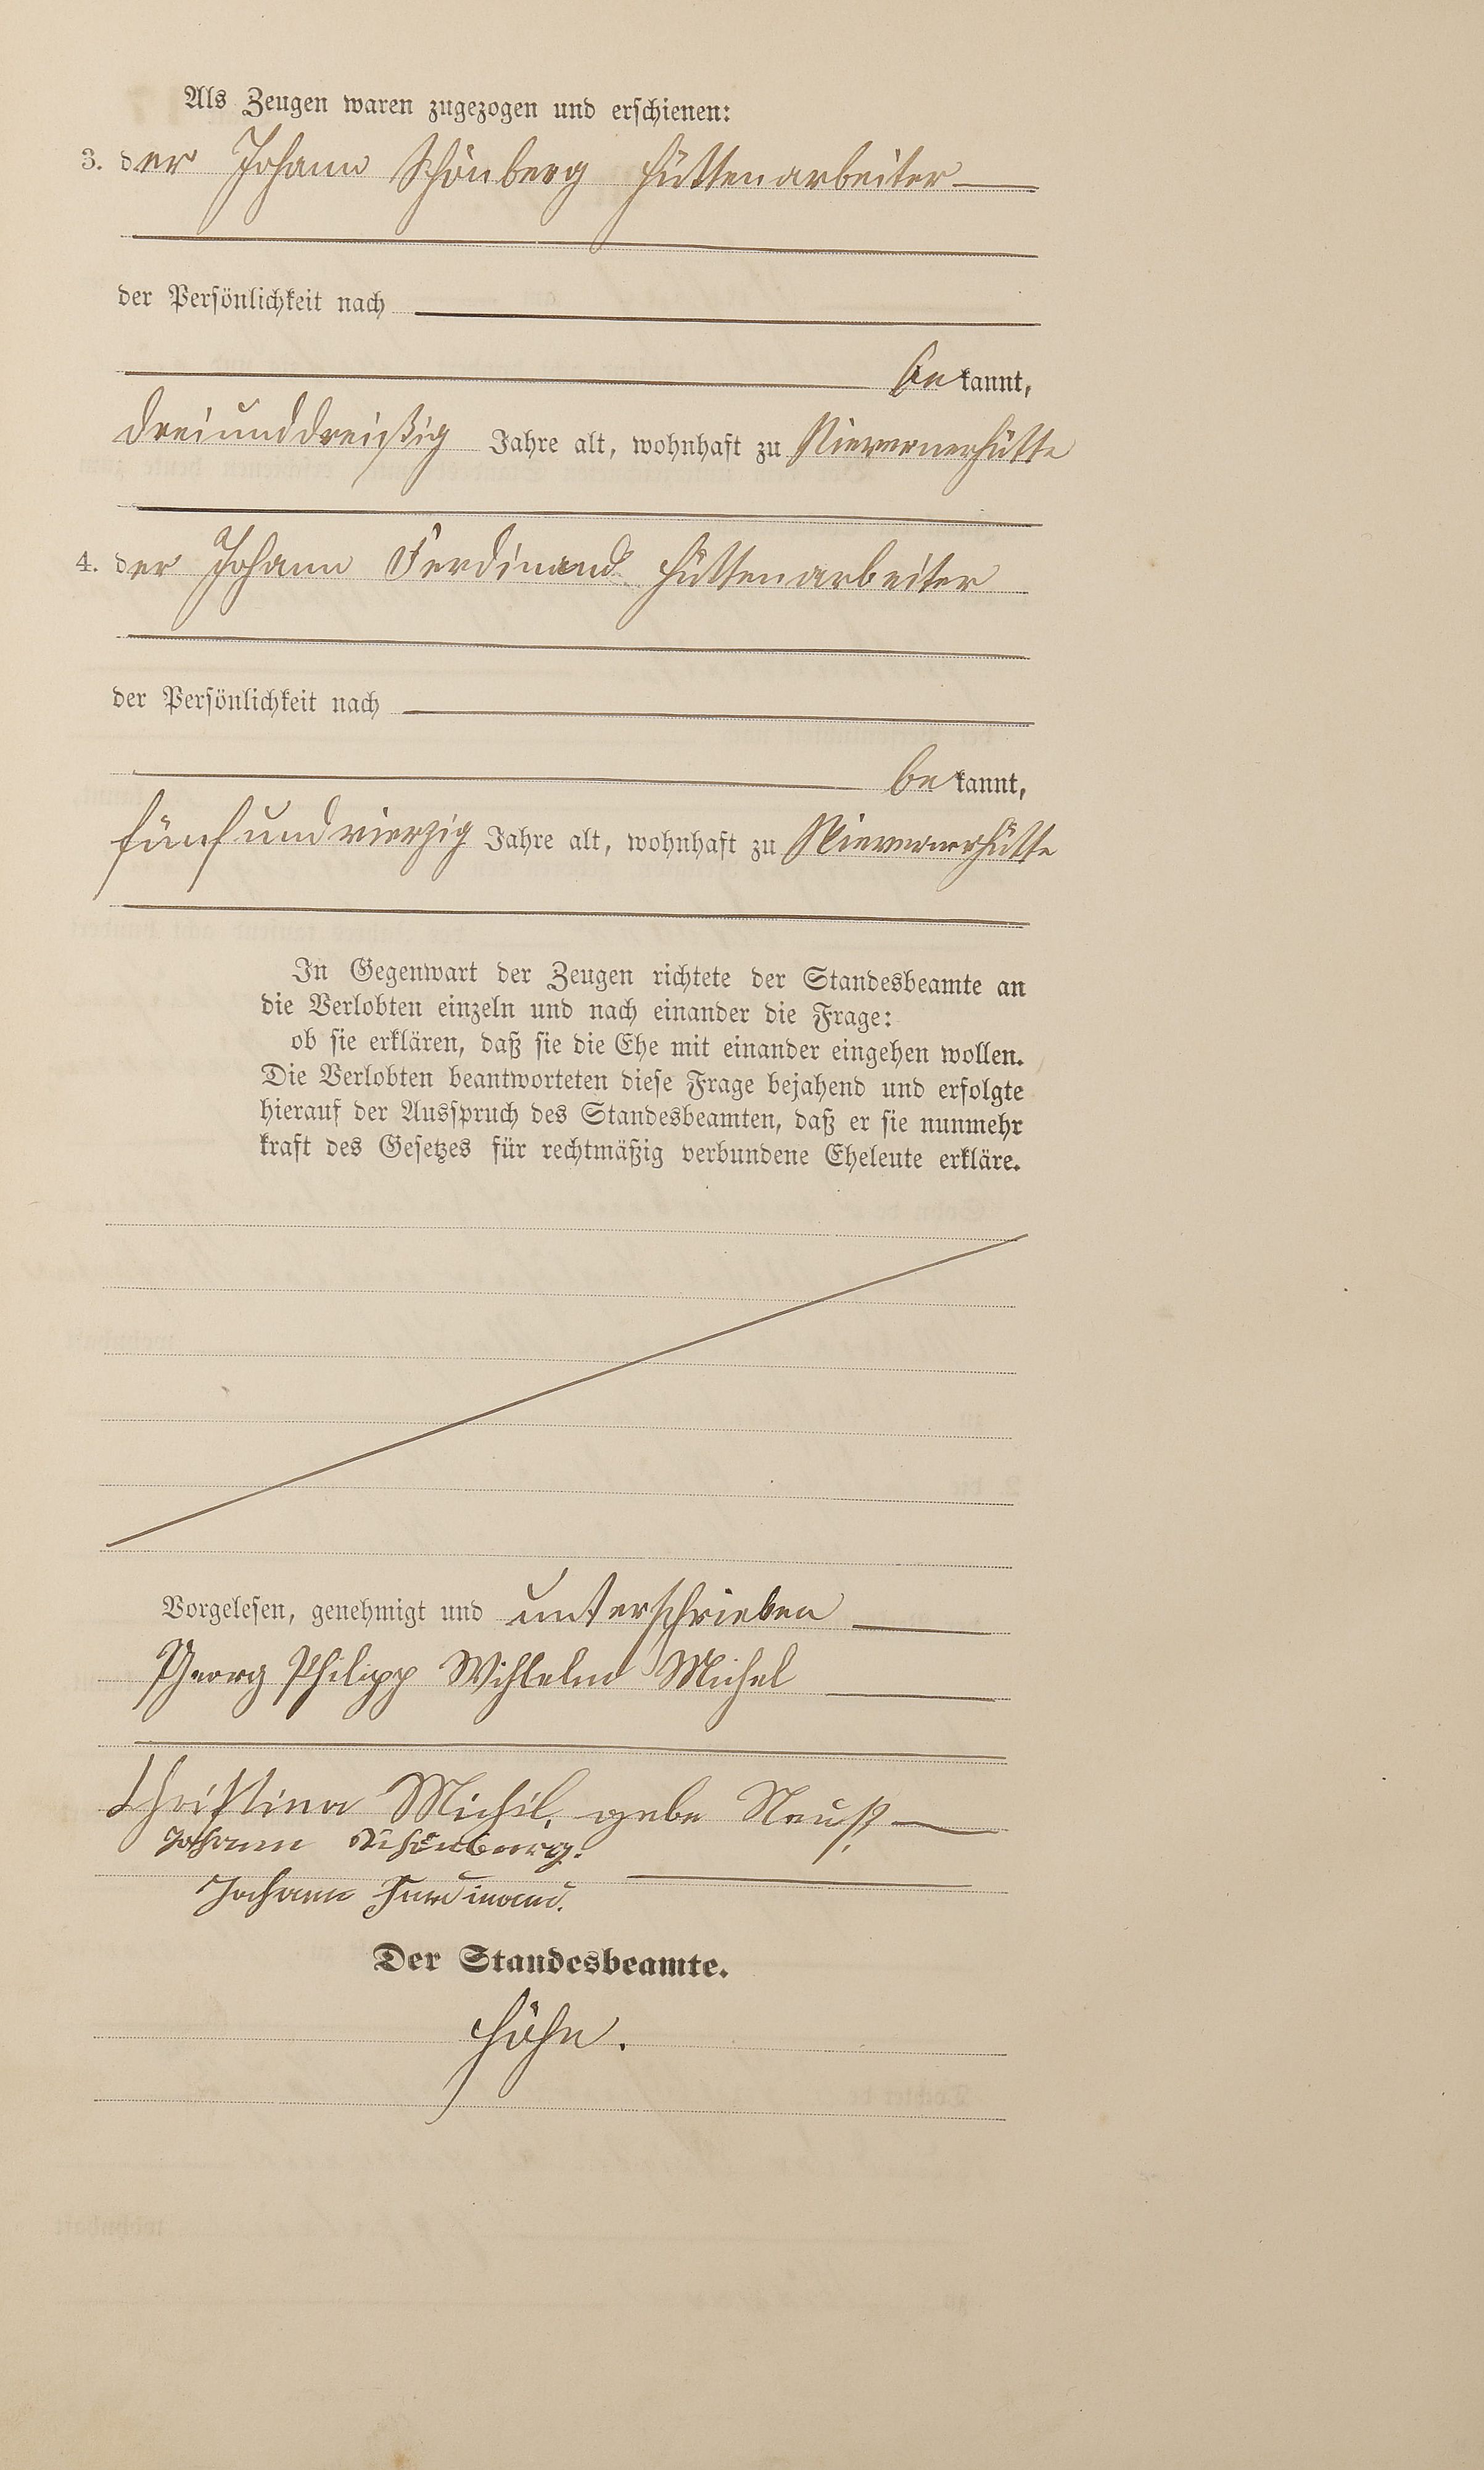 Als Zeugen waren zugezogen und erschienen:
3. der Johann Schönberg Hüttenarbeiter
der Persönlichkeit nach
bekannt,
dreiunddreißig Jahre alt, wohnhaft zu Nievernerhütte
4. der Johann Ferdinand Hüttenarbeiter
der Persönlichkeit nach
bekannt,
fünfundvierzig Jahre alt, wohnhaft zu Nievernerhütte
In Gegenwart der Zeugen richtete der Standesbeamte an
die Verlobten einzeln und nach einander die Frage:
ob sie erklären, daß sie die Ehe mit einander eingehen wollen.
Die Verlobten beantworteten diese Frage bejahend und erfolgte
hierauf der Ausspruch des Standesbeamten, daß er sie nunmehr
kraft des Gesetzes für rechtmäßig verbundene Eheleute erkläre.
Vorgelesen, genehmigt und unterschrieben
Georg Philipp Wihlelm Michel
Christina Michil, gebe
Johann Schönberg.
Johann Ferdinand.
Der Standesbeamte.
Höhn.